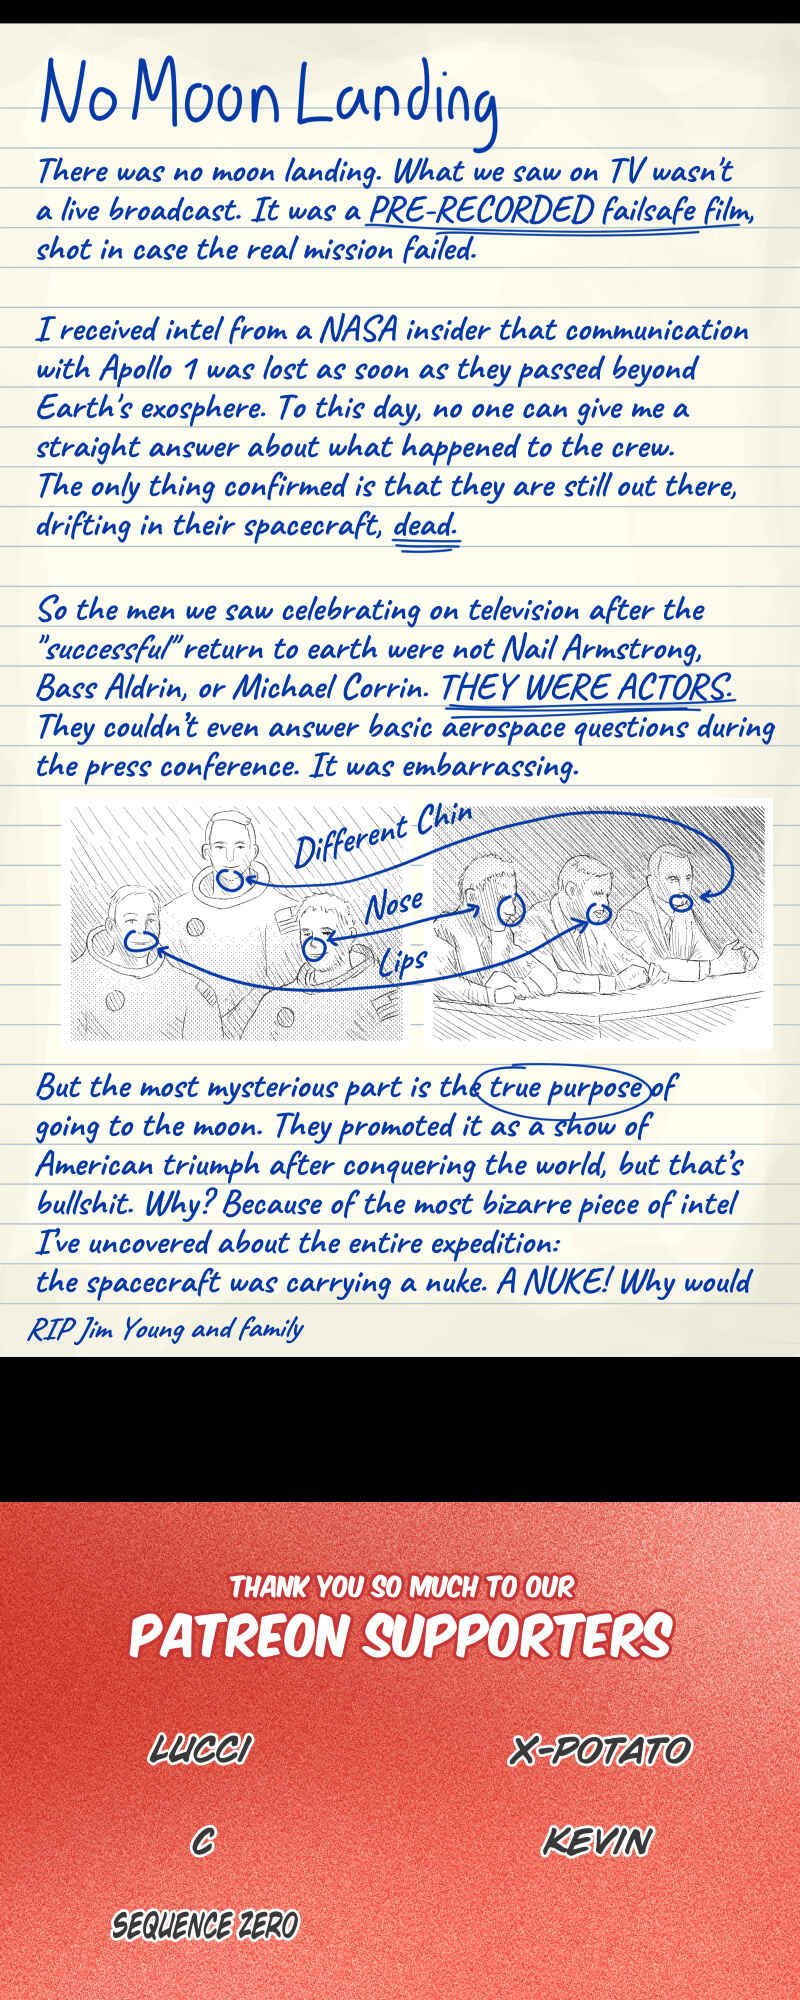 No Moon Landing
There was no moon landing. What we saw on TV wasn't
a live broadcast. It was a PRE-RECORDED failsafe film,
shot in case the real mission failed.
I received intel from a NASA insider that communication
with Apollo 1 was lost as soon as they passed beyond
Earth's exosphere. To this day, no one can give me a
straight answer about what happened to the crew.
The only thing confirmed is that they are still out there,
drifting in their spacecraft, dead.
So the men we saw celebrating on television after the
"successful" return to earth were not Nail Armstrong,
Bass Aldrin, or Michael Corrin. THEY WERE ACTORS.
They couldn't even answer basic aerospace questions during
the press conference. It was embarrassing.
Different Chin
Nose
Lips
But the most mysterious part is the true purpose of
going to the moon. They promoted it as a show of
American triumph after conquering the world, but that's
bullshit. Why? Because of the most bizarre piece of intel
I've uncovered about the entire expedition:
the spacecraft was carrying a nuke. A NUKE! Why would
RIP Jim Young and family
THANK YOU SO MUCH TO OUR
PATREON SUPPORTERS
LUCCI
X-POTATO
C
KEVIN
SEQUENCE ZERO